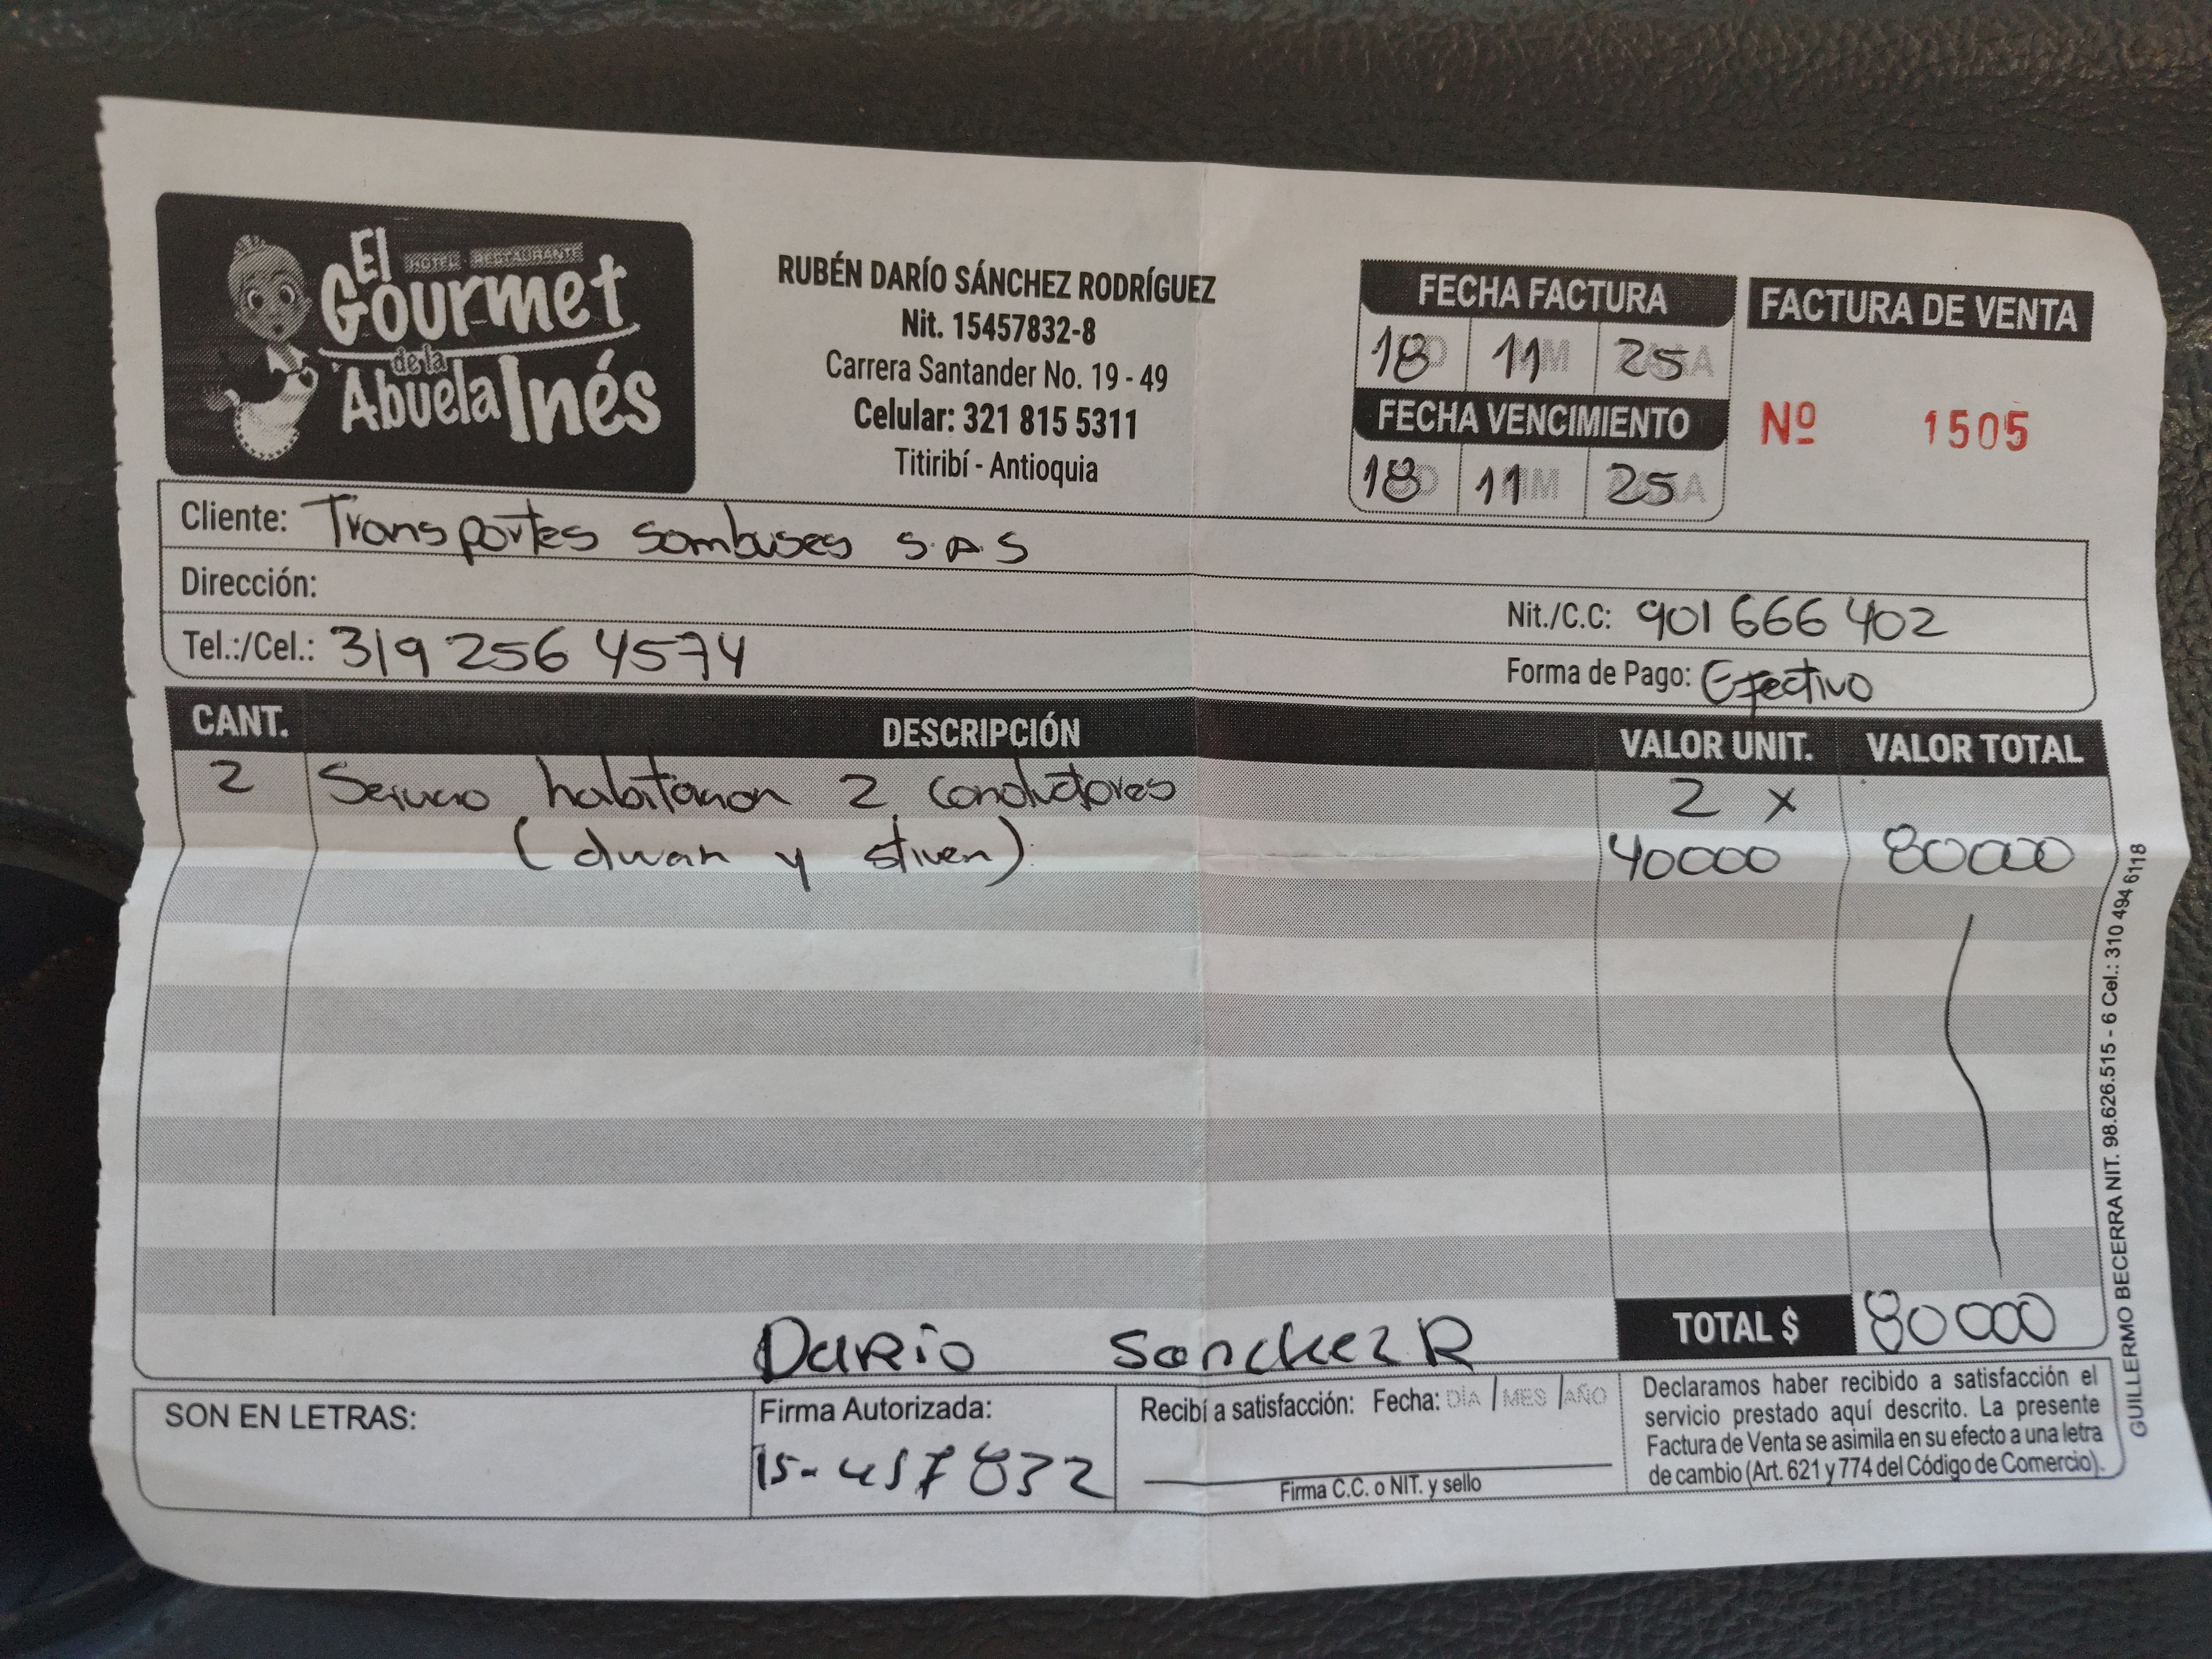 El
HOTEL RESTAURANTE
Gourmet
de la
Abuela Inés
RUBÉN DARÍO SÁNCHEZ RODRÍGUEZ
Nit. 15457832-8
Carrera Santander No. 19 - 49
Celular: 321 815 5311
Titiribí - Antioquia
FECHA FACTURA
18 11 25
FECHA VENCIMIENTO
18 11 25
FACTURA DE VENTA
Nº 1505
Cliente: Transportes sombuses S.A.S
Dirección:
Nit./C.C: 901 666 402
Tel.:/Cel.: 319 256 4574
Forma de Pago: Efectivo
CANT. DESCRIPCIÓN VALOR UNIT. VALOR TOTAL
2 Servicio habitacion 2 conductores 2 x
(duvan y stiven) 40000 80000
TOTAL $ 80000
Dario Sanchez R
SON EN LETRAS:
Firma Autorizada:
15-457832
Recibí a satisfacción: Fecha: DÍA / MES / AÑO
Firma C.C. o NIT. y sello
Declaramos haber recibido a satisfacción el
servicio prestado aquí descrito. La presente
Factura de Venta se asimila en su efecto a una letra
de cambio (Art. 621 y 774 del Código de Comercio).
GUILLERMO BECERRA NIT. 98.626.515 - 6 Cel.: 310 494 6118